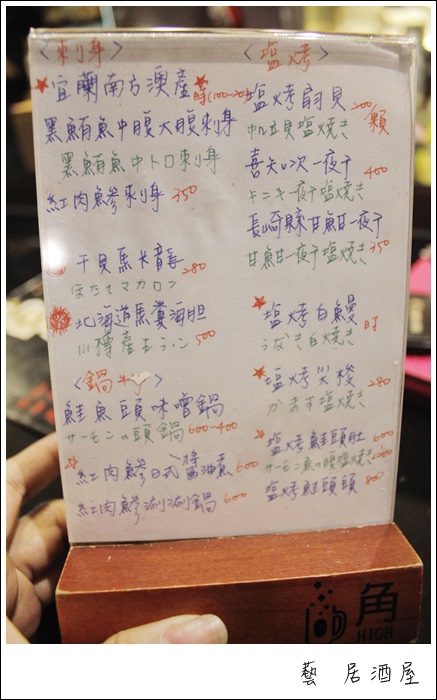 <刺身>
宜蘭南方澳產
時(100-20
黑鮪魚中腹大腹刺身
黑鮪魚中トロ刺身
紅肉鰺刺身 350
干貝馬卡龍 280
ほたてマカロン
北海道馬糞海胆
小樽産エラニ 500
<鍋牛>
鮭魚頭味噌鍋
サーモンの頭鍋 600-400
紅肉鰺日式醬油煮 600
紅肉鰺涮涮鍋 600
<塩烤>
塩烤扇貝 200
帆立貝塩焼き 顆
喜知次一夜干 400
キンキ一夜干塩焼き
長崎縣甘魚甘一夜干
甘魚甘一夜干塩焼き 350
塩烤白鰻 時
うなぎ白焼き
塩烤尖梭 280
かます塩焼き
塩烤鮭頭肚 600
サーモン魚の腹塩焼き
塩烤鮭頭頭 800
角
HIGH
藝 居酒屋